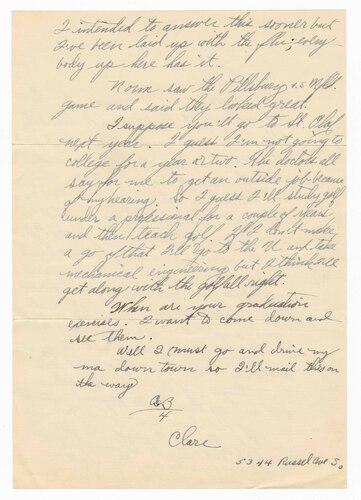 I intended to answer this sooner but
I've been laid up with the flu; every
body up here has it.
Norm saw the Pillsbury & S. Mpls.
game and said they looked great.
I suppose you'll go to St. Olaf
next year. I guess I'm not going to
college for a year or two. The doctors all
say for me to get an outside job because
of my hearing. So I guess I'll study golf
under a professional for a couple of years
and then teach golf. If I don't make
a go of that I'll go to the U and take
mechanical engineering but I think I'll
get along with the golf all right.
When are your graduation
exercises. I want to come down and
see them.
Well I must go and drive my
ma down town so I'll mail this on
the way
4
Clare
5344 Russel Ave S.